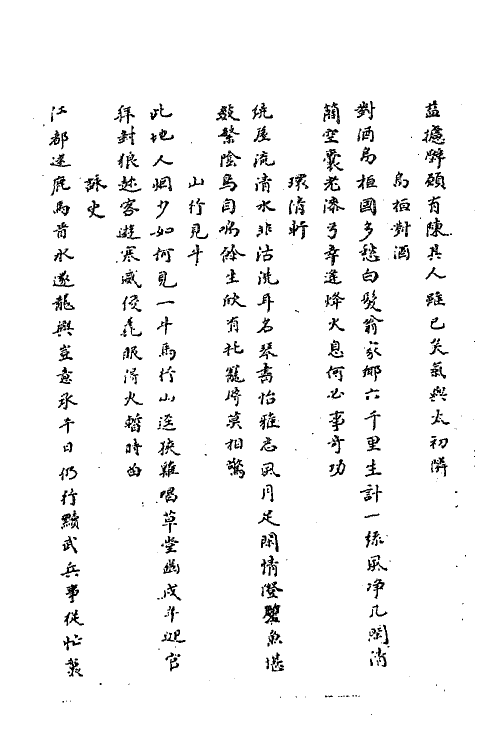 藍擄辭頗有陳其人雖已矣氣與太初隣
烏桓對酒
對酒烏桓國多愁白髮翁家鄉六千里生計一絲風净几閑消
簡空囊老澀弓幸逢烽火息何必事奇功
環清軒
繞屋流清水非沽洗耳名琴書怡雅志風月足閑情澄碧魚堪
數繁陰鳥自鳴餘生欣有托寵辱莫相驚
山行見斗
此地人烟少如何見一斗馬行山逕狹雞唱草堂幽戍斗迎官
拜封狼趁客遊寒威侵毳服得火暫時留
詠史
江都迷鹿馬首水逐龍輿豈意承平日仍行黷武兵事從忙裏